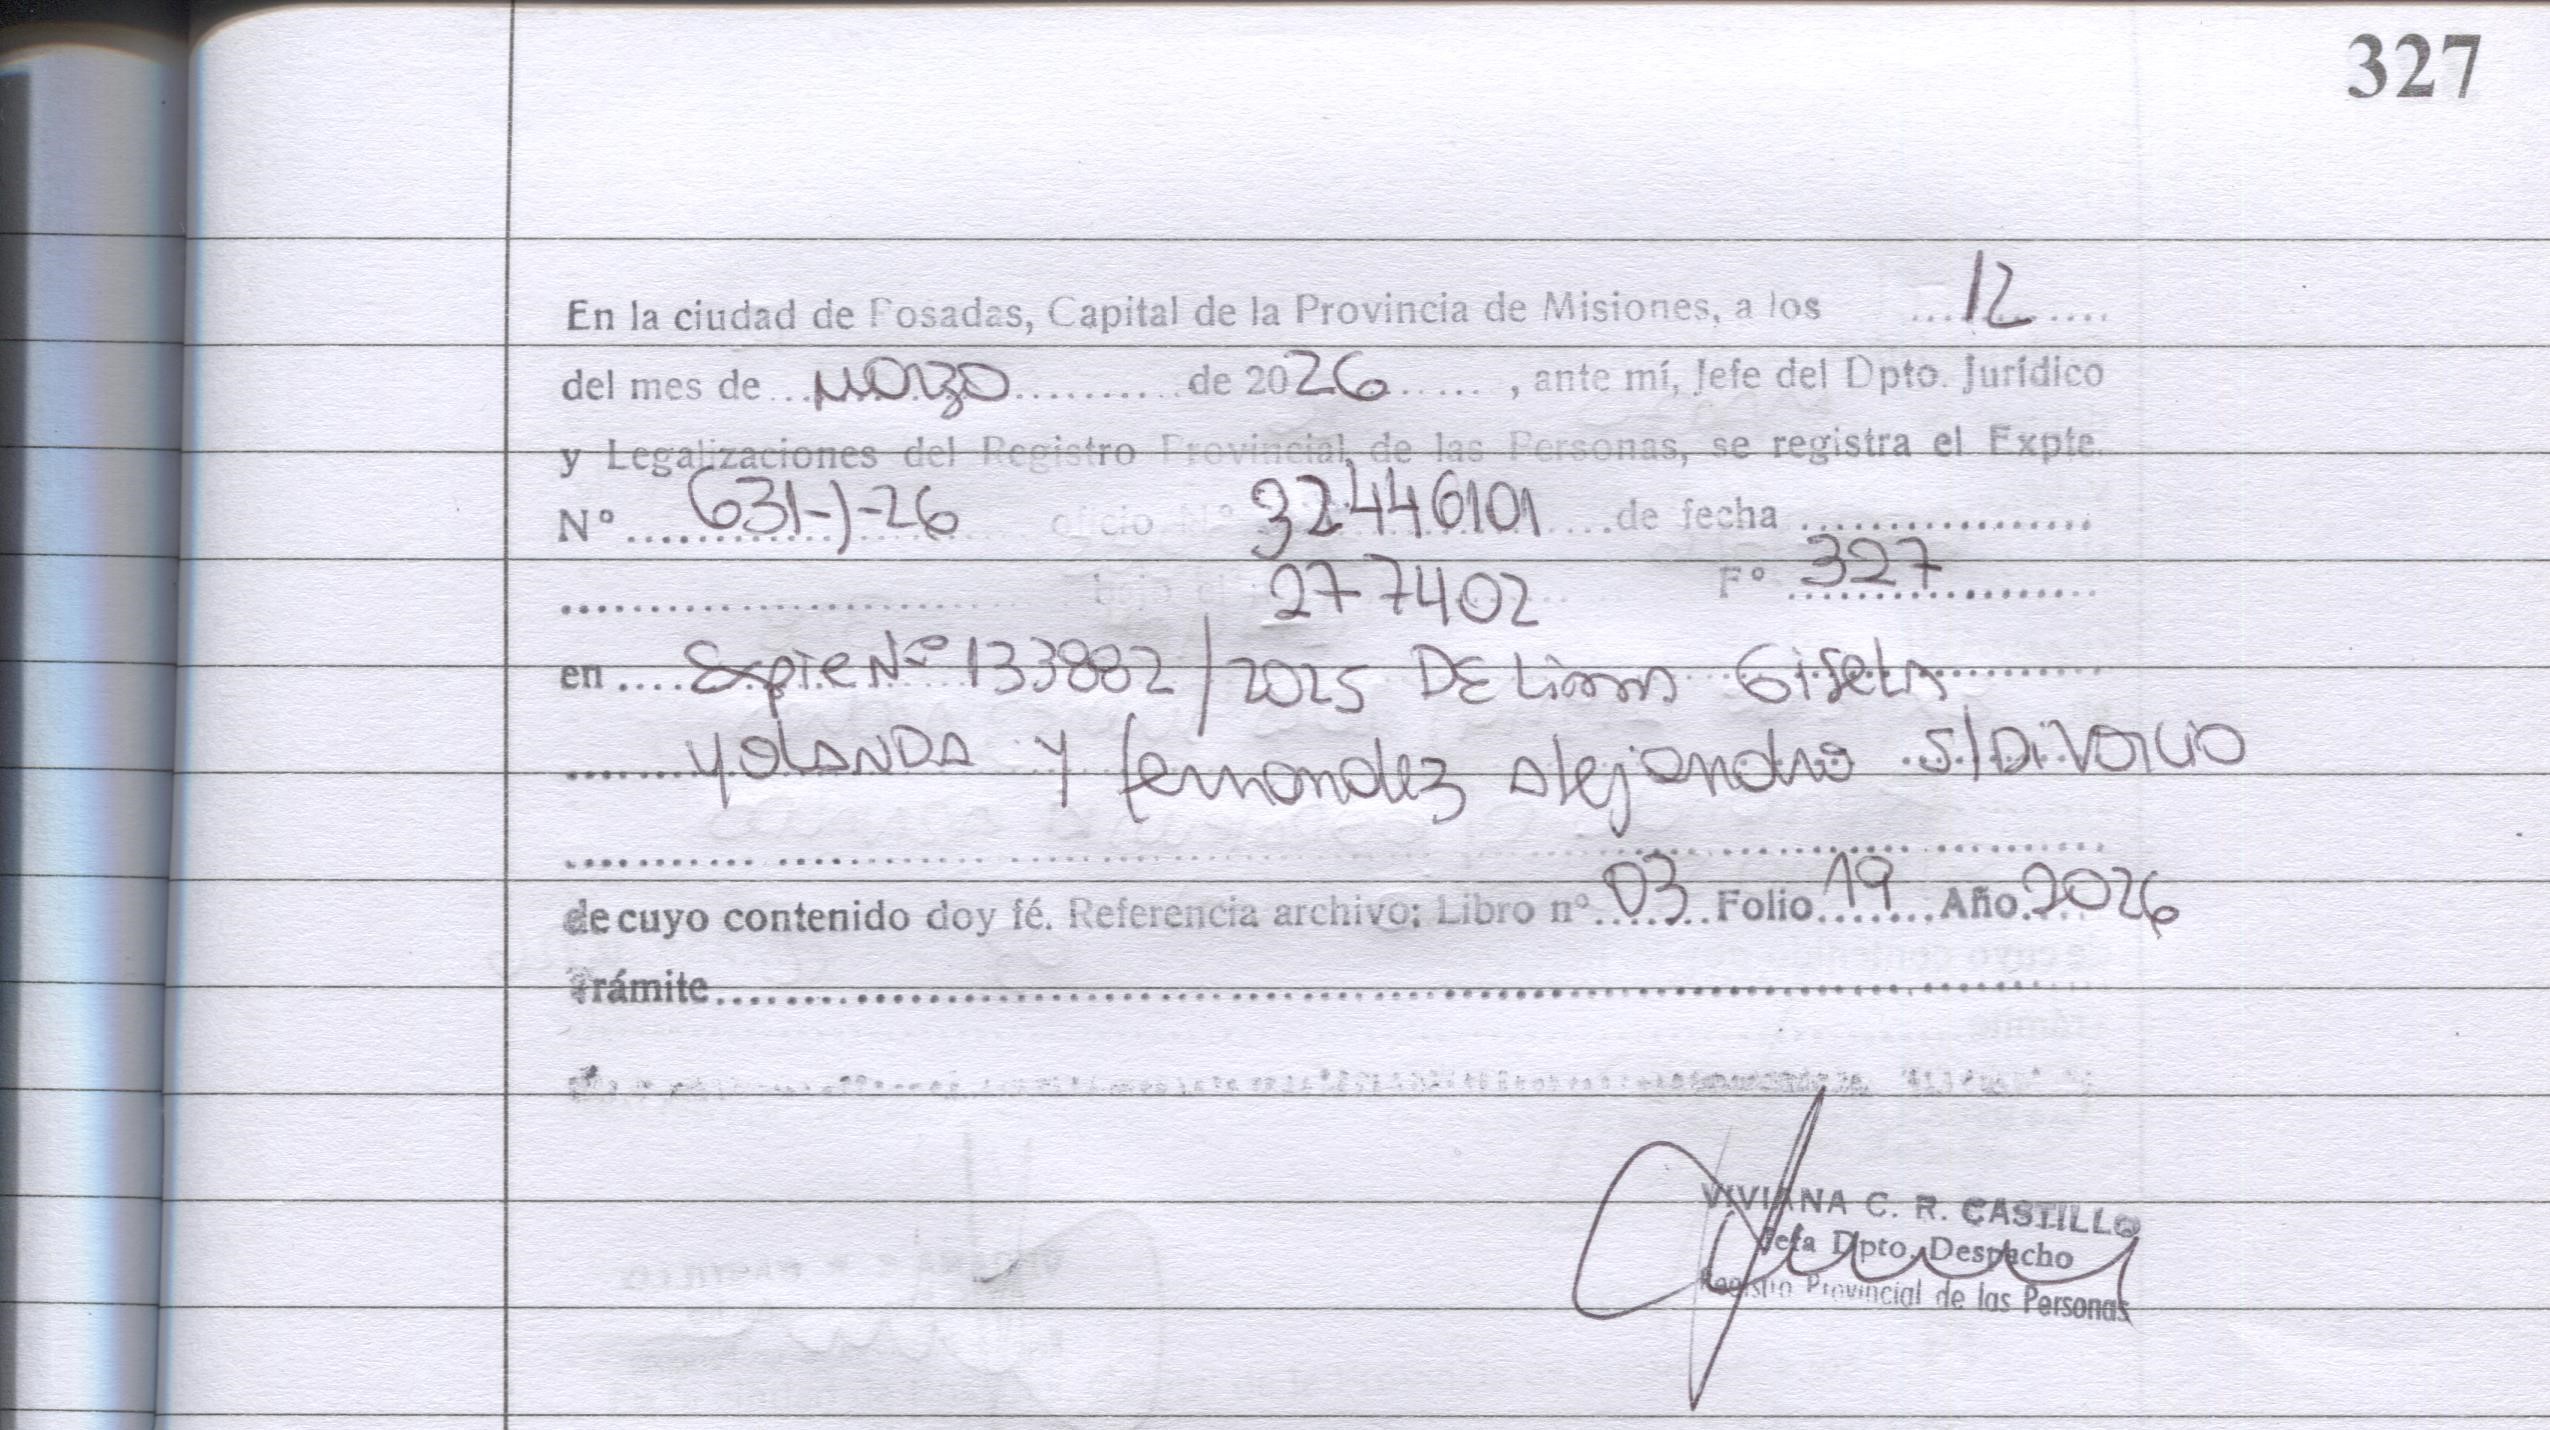 327
En la ciudad de Posadas, Capital de la Provincia de Misiones, a los 12
del mes de marzo de 2026, ante mí, Jefe del Dpto. Jurídico
y Legalizaciones del Registro Provincial de las Personas, se registra el Expte.
Nº 631-J-26 oficio Nº 32446101 de fecha
bajo el 277402 Fº 327
en Expte Nº 133882/2025 DE Lima Gisela
YOLANDA Y fernandez Alejandro S/Divorcio
de cuyo contenido doy fé. Referencia archivo: Libro nº 03 Folio 19 Año 2026
Trámite
VIVIANA C. R. CASTILLO
Jefa Dpto. Despacho
Registro Provincial de las Personas